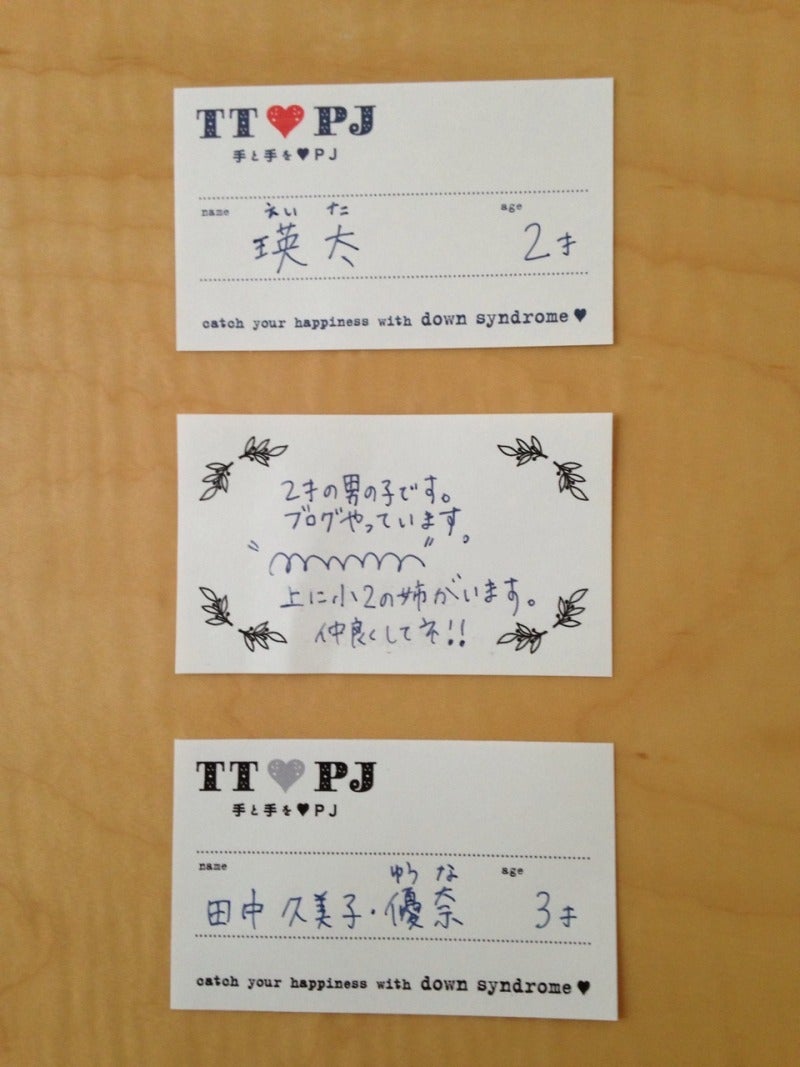 TT♥PJ
手と手を♥PJ
name えいた age
瑛太 2才
catch your happiness with down syndrome♥
2才の男の子です。
ブログやっています。
" "
上に小2の姉がいます。
仲良くしてネ!!
TT♥PJ
手と手を♥PJ
name ゆうな age
田中久美子・優奈 3才
catch your happiness with down syndrome♥